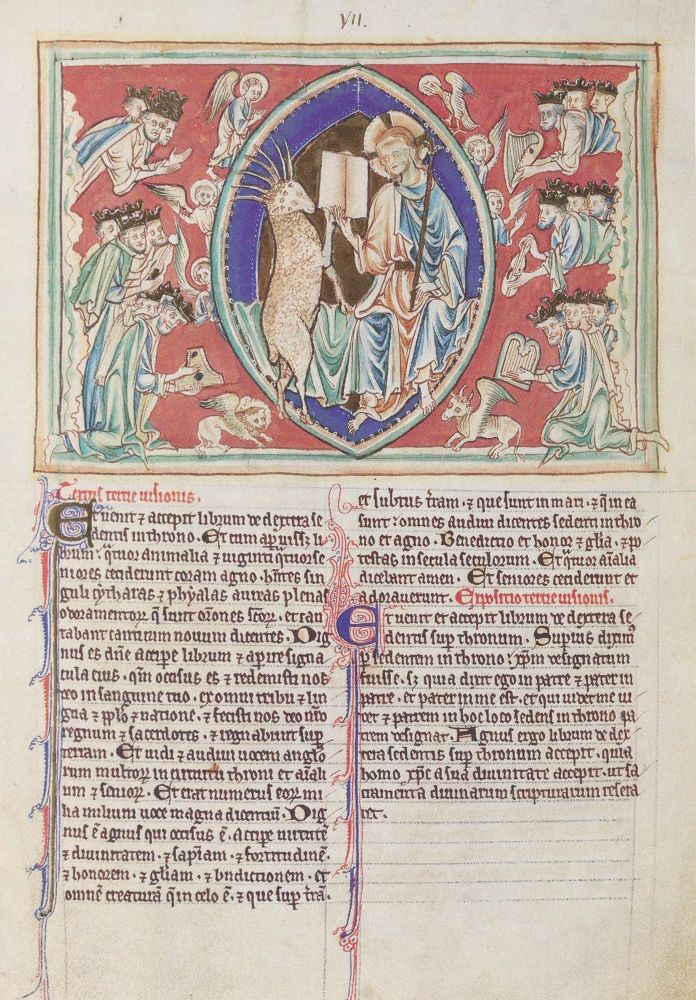 VII.
Textus tercie uisionis.
Et uenit ⁊ accepit librum de dextera se
dentis in throno. Et cum apuiss; li
brum. q̄tuor animalia ⁊ uiginti q̄tuor se
niores ceciderunt coram agno. hn̄tes sin
guli cytharas ⁊ phyalas aureas plenas
odoramentor̄ q̄ sunt or̄ones sc̄or̄. et can
tabant canticum nouum dicentes. Dig
nus es dn̄e accipe librum ⁊ apire signa
cula eius. qm̄ occisus es ⁊ redemisti nos
deo in sanguine tuo. ex omni tribu ⁊ lin
gua ⁊ pp̄lo ⁊ natione. ⁊ fecisti nos deo nr̄o
regnum ⁊ sacerdotes. ⁊ regnabunt sup̄
terram. Et uidi ⁊ audiui uocem anglo
rum multor̄ in circuitu throni et aīal
um ⁊ senior̄. Et erat numerus eor̄ mi
lia milium uoce magna dicentium. Dig
nus ē agnus qui occisus ē. accipe uirtutē
⁊ diuinitatem. ⁊ sap̄iam. ⁊ fortitudinē.
⁊ honorem. ⁊ gl̄iam. ⁊ bn̄dictionem. et
omnē creaturā q̄ in celo ē. ⁊ que sup̄ tr̄ā.
et subtus tr̄am. ⁊ que sunt in mari. ⁊ q̄ in ea
sunt: omnes audiui dicentes sedenti in thro
no et agno. Benedictio et honor ⁊ gl̄ia. ⁊ po
testas in secula seculorum. Et q̄tuor aīalia
dicebant amen. Et seniores ceciderunt et
adorauerunt. Expositio tercie uisionis.
Et uenit et accepit librum de dextera se
dentis sup̄ thronum. Superius diximꝰ
p̄ sedentem in throno: xp̄m designatum
fuisse. s; quia dixit ego in patre ⁊ pater in
patre. et pater in me est. et qui uidet me ui
det ⁊ patrem in hoc loco sedens in throno pa
trem designat. Agnus ergo librum de dex
tera sedentis sup̄ thronum accepit. quia
homo xp̄c a sua diuinitate accepit. ut sa
cramenta diuinarum scripturarum resera
ret.